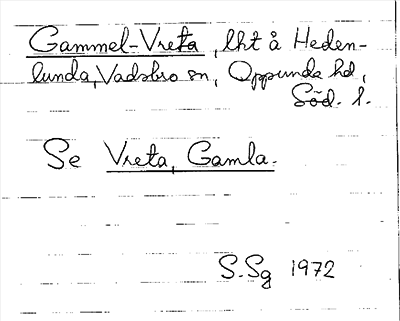 Gammel-Vreta, lht å Heden-
lunda, Vadsbro sn, Oppunda hd,
Söd. l.
Se Vreta, Gamla.
S.Sg 1972